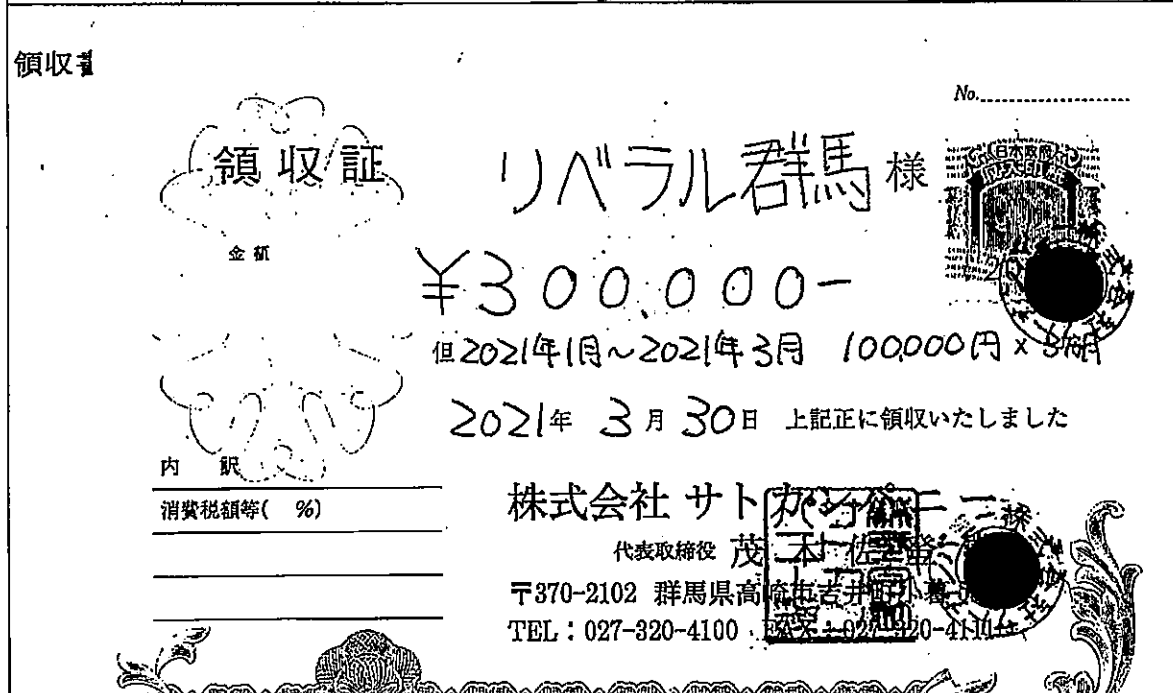 領収書
No.
領収証
リベラル群馬 様
日本政府
金額
¥300,000-
但2021年1月～2021年3月 100,000円×3ヶ月
2021年 3月 30日 上記正に領収いたしました
内 訳
消費税額等( %)
株式会社 サトカンパニー
代表取締役 茂木佐
〒370-2102 群馬県高崎市吉井町小暮
TEL：027-320-4100 FAX：027-320-4110